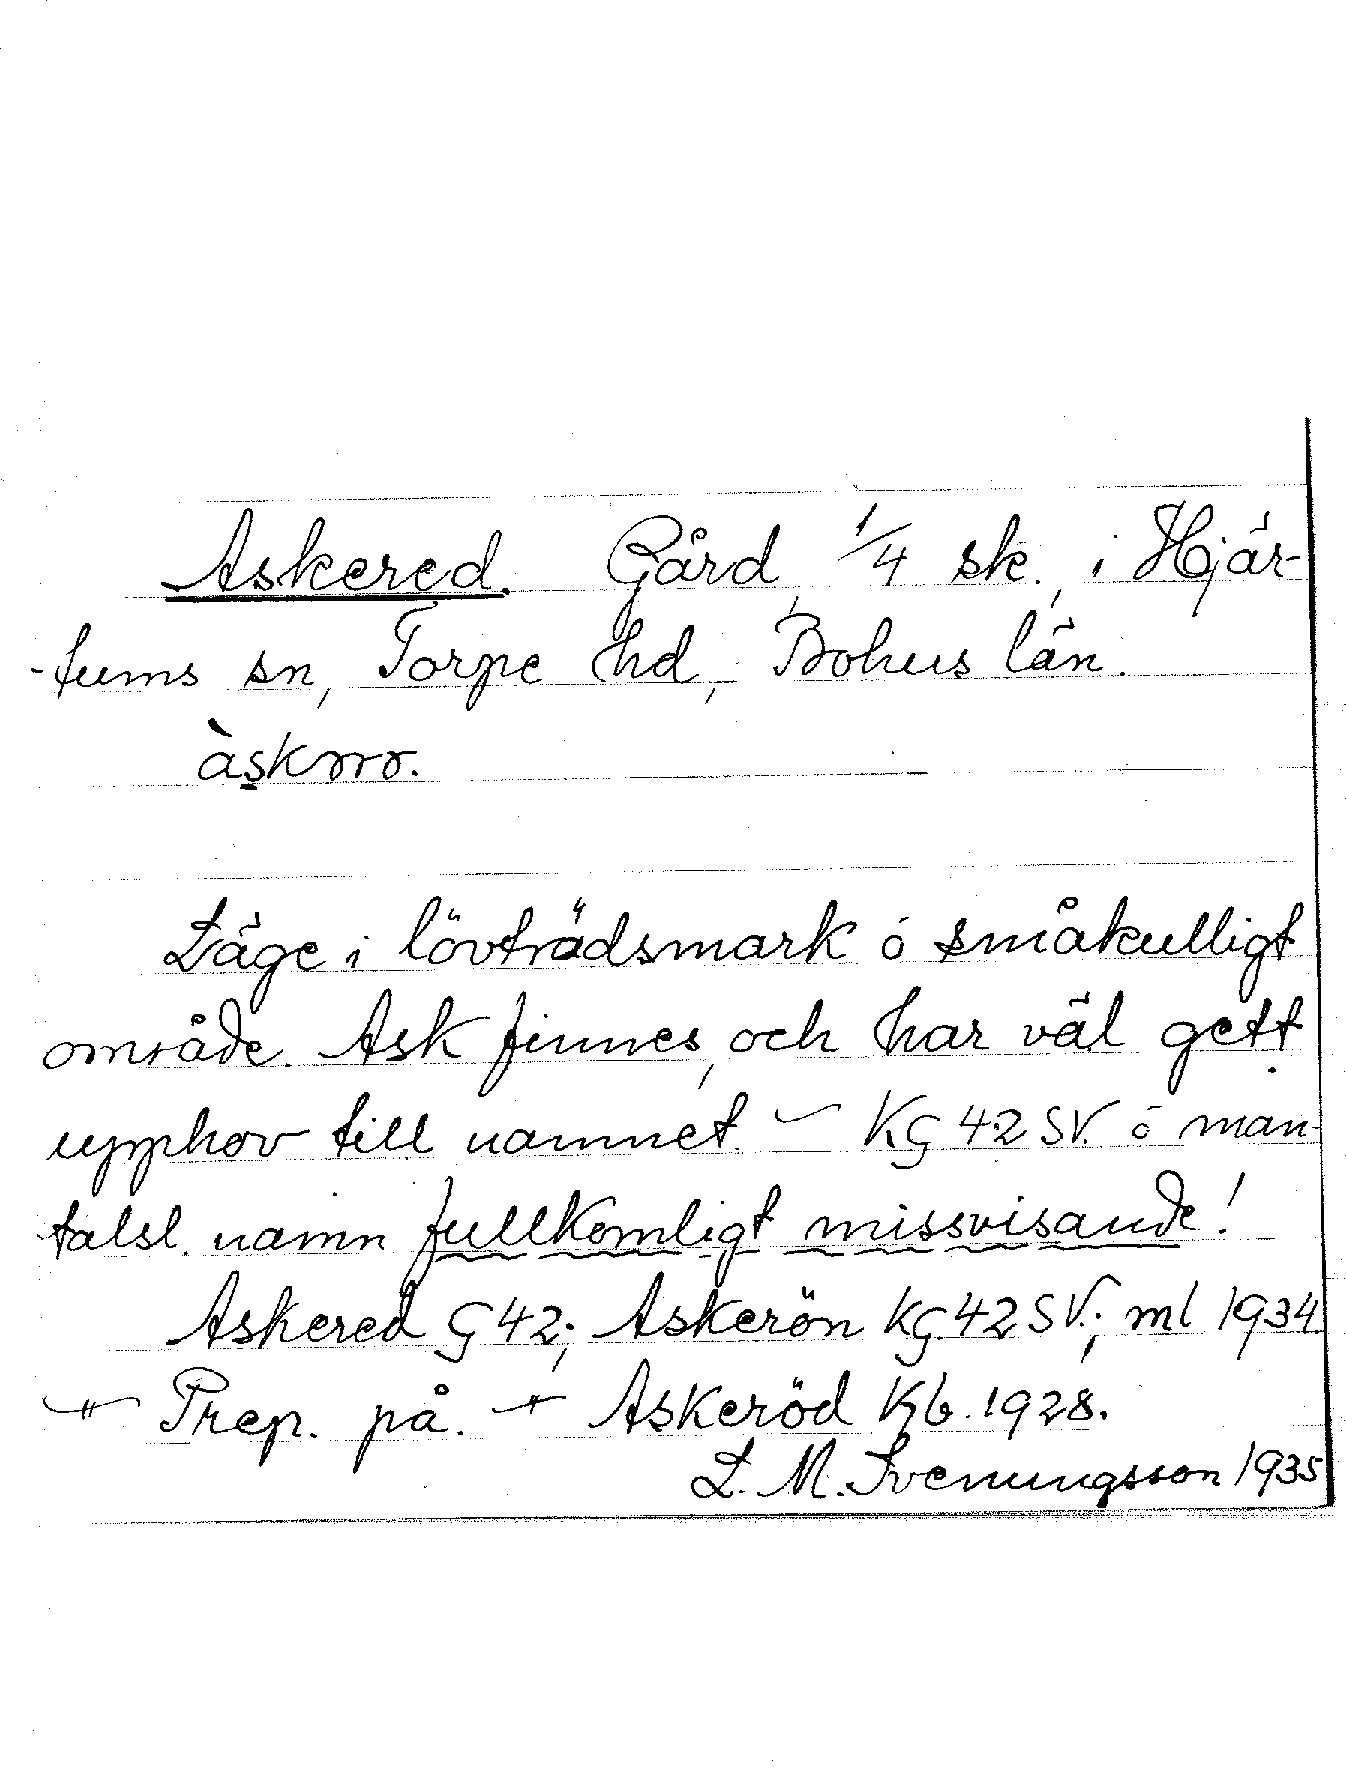 Askered. Gård, 1/4 sk., i Hjär-
-tums sn, Torpe hd, Bohus län.
Läge i lövträdsmark ó småkulligt
område. Ask finnes, och har väl gett
upphov till namnet. – KG 42 SV. ó man-
talsl. namn fullkomligt missvisande!
Askered G 42; Askerön KG 42 SV.; ml 1934
–"– Prep. på. –"– Askeröd Kb. 1928.
L. M. Svenungsson 1935